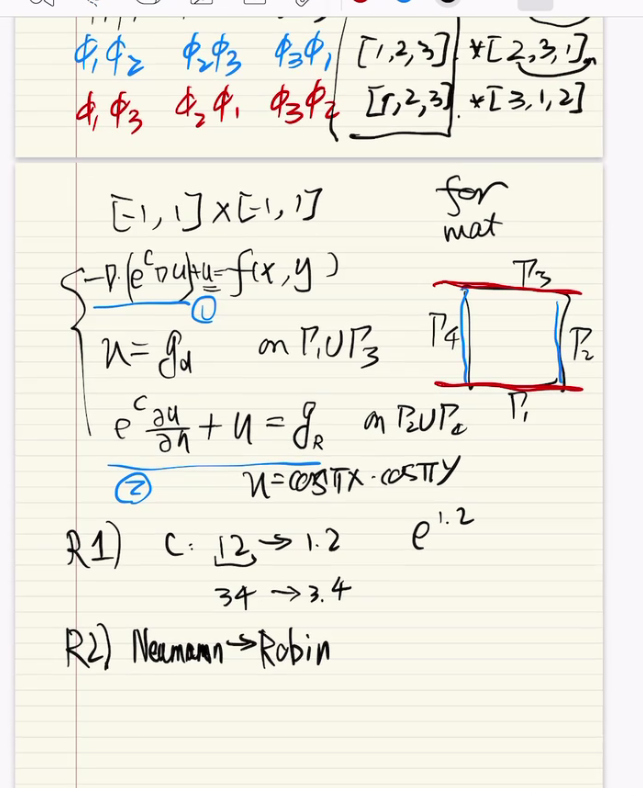 ϕ₁ϕ₂ ϕ₂ϕ₃ ϕ₃ϕ₁ [1,2,3] *[2,3,1]
ϕ₁ϕ₃ ϕ₂ϕ₁ ϕ₃ϕ₂ [1,2,3]. *[3,1,2]
[-1, 1]×[-1, 1] for
mat
-∇·(e^c∇u)+u=f(x,y)
①
u=g_d on Γ₁∪Γ₃
e^c ∂u/∂n + u = g_R on Γ₂∪Γ₄
②
u=cosπx·cosπy
Γ₃
Γ₄ Γ₂
Γ₁
R1) C: 12→1.2 e^1.2
34→3.4
R2) Neumann→Robin